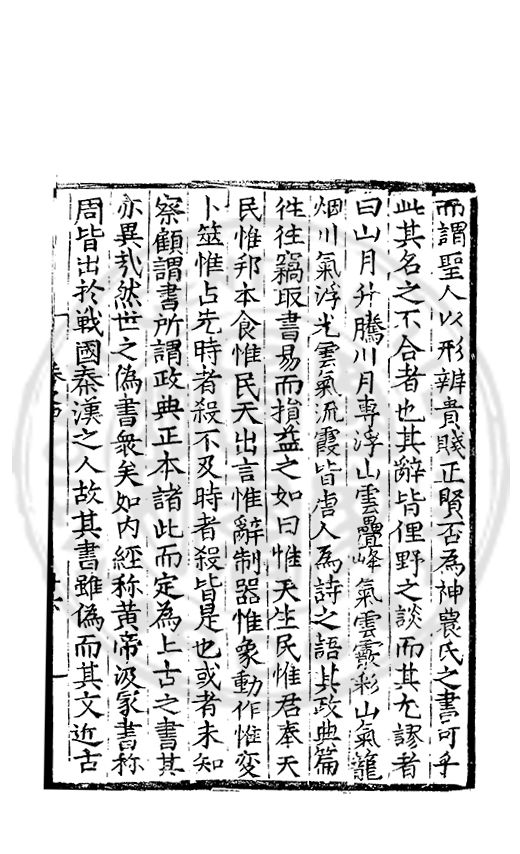 而謂聖人以形辨貴賤正賢否為神農氏之書可乎
此其名之不合者也其辭皆俚野之談而其尤謬者
曰山月升騰川月專浮山雲疊峰氣雲霞彩山氣籠
烟川氣浮光雲氣流霞皆唐人為詩之語其政典篇
徃徃竊取書易而損益之如曰惟天生民惟君奉天
民惟邦本食惟民天出言惟辭制器惟象動作惟變
卜筮惟占先時者殺不及時者殺皆是也或者未知
察顧謂書所謂政典正本諸此而定為上古之書其
亦異哉然世之偽書衆矣如内經称黄帝汲冢書称
周皆出於戰國秦漢之人故其書雖偽而其文近古